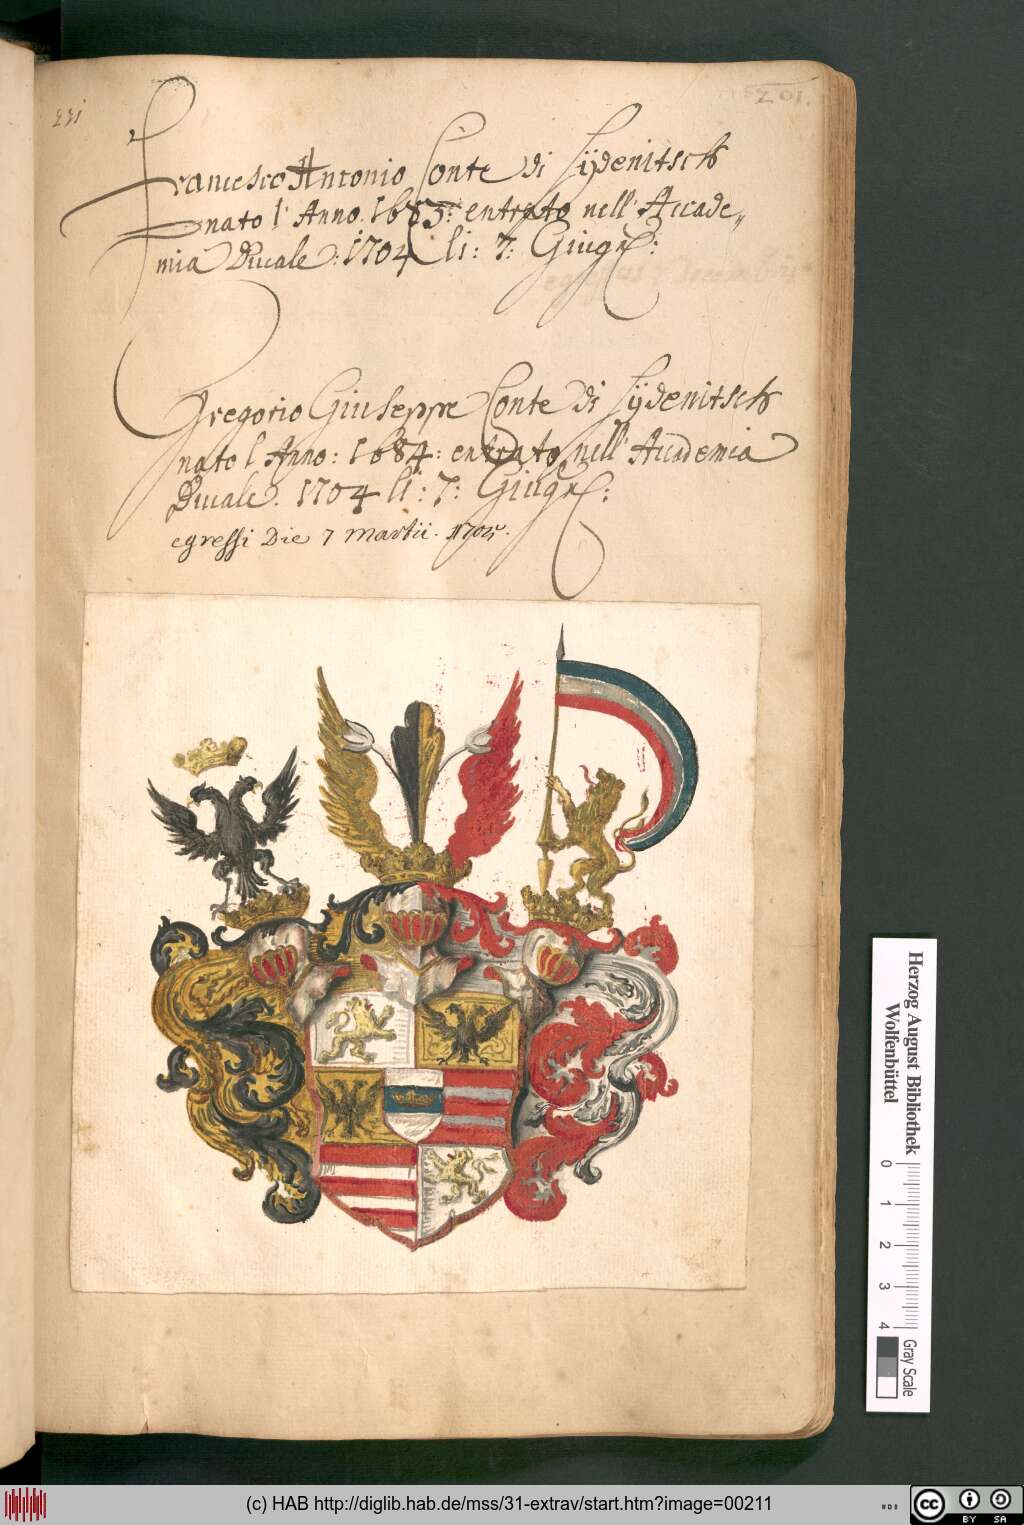 231
201.
Francesco Antonio Conte di Sÿdenitsch
nato l' Anno. 1683: entrato nell' Accade„
mia Ducale: 1704 li: 7: Giugn:
Gregorio Giuseppe Conte di Sÿdenitsch
nato l' Anno: 1684: entrato nell' Accademia
Ducale. 1704 li: 7: Giugn:
egressi Die 7 Martii. 1705.
Herzog August Bibliothek
Wolfenbüttel
0 1 2 3 4
Gray Scale
(c) HAB http://diglib.hab.de/mss/31-extrav/start.htm?image=00211
cc
BY SA